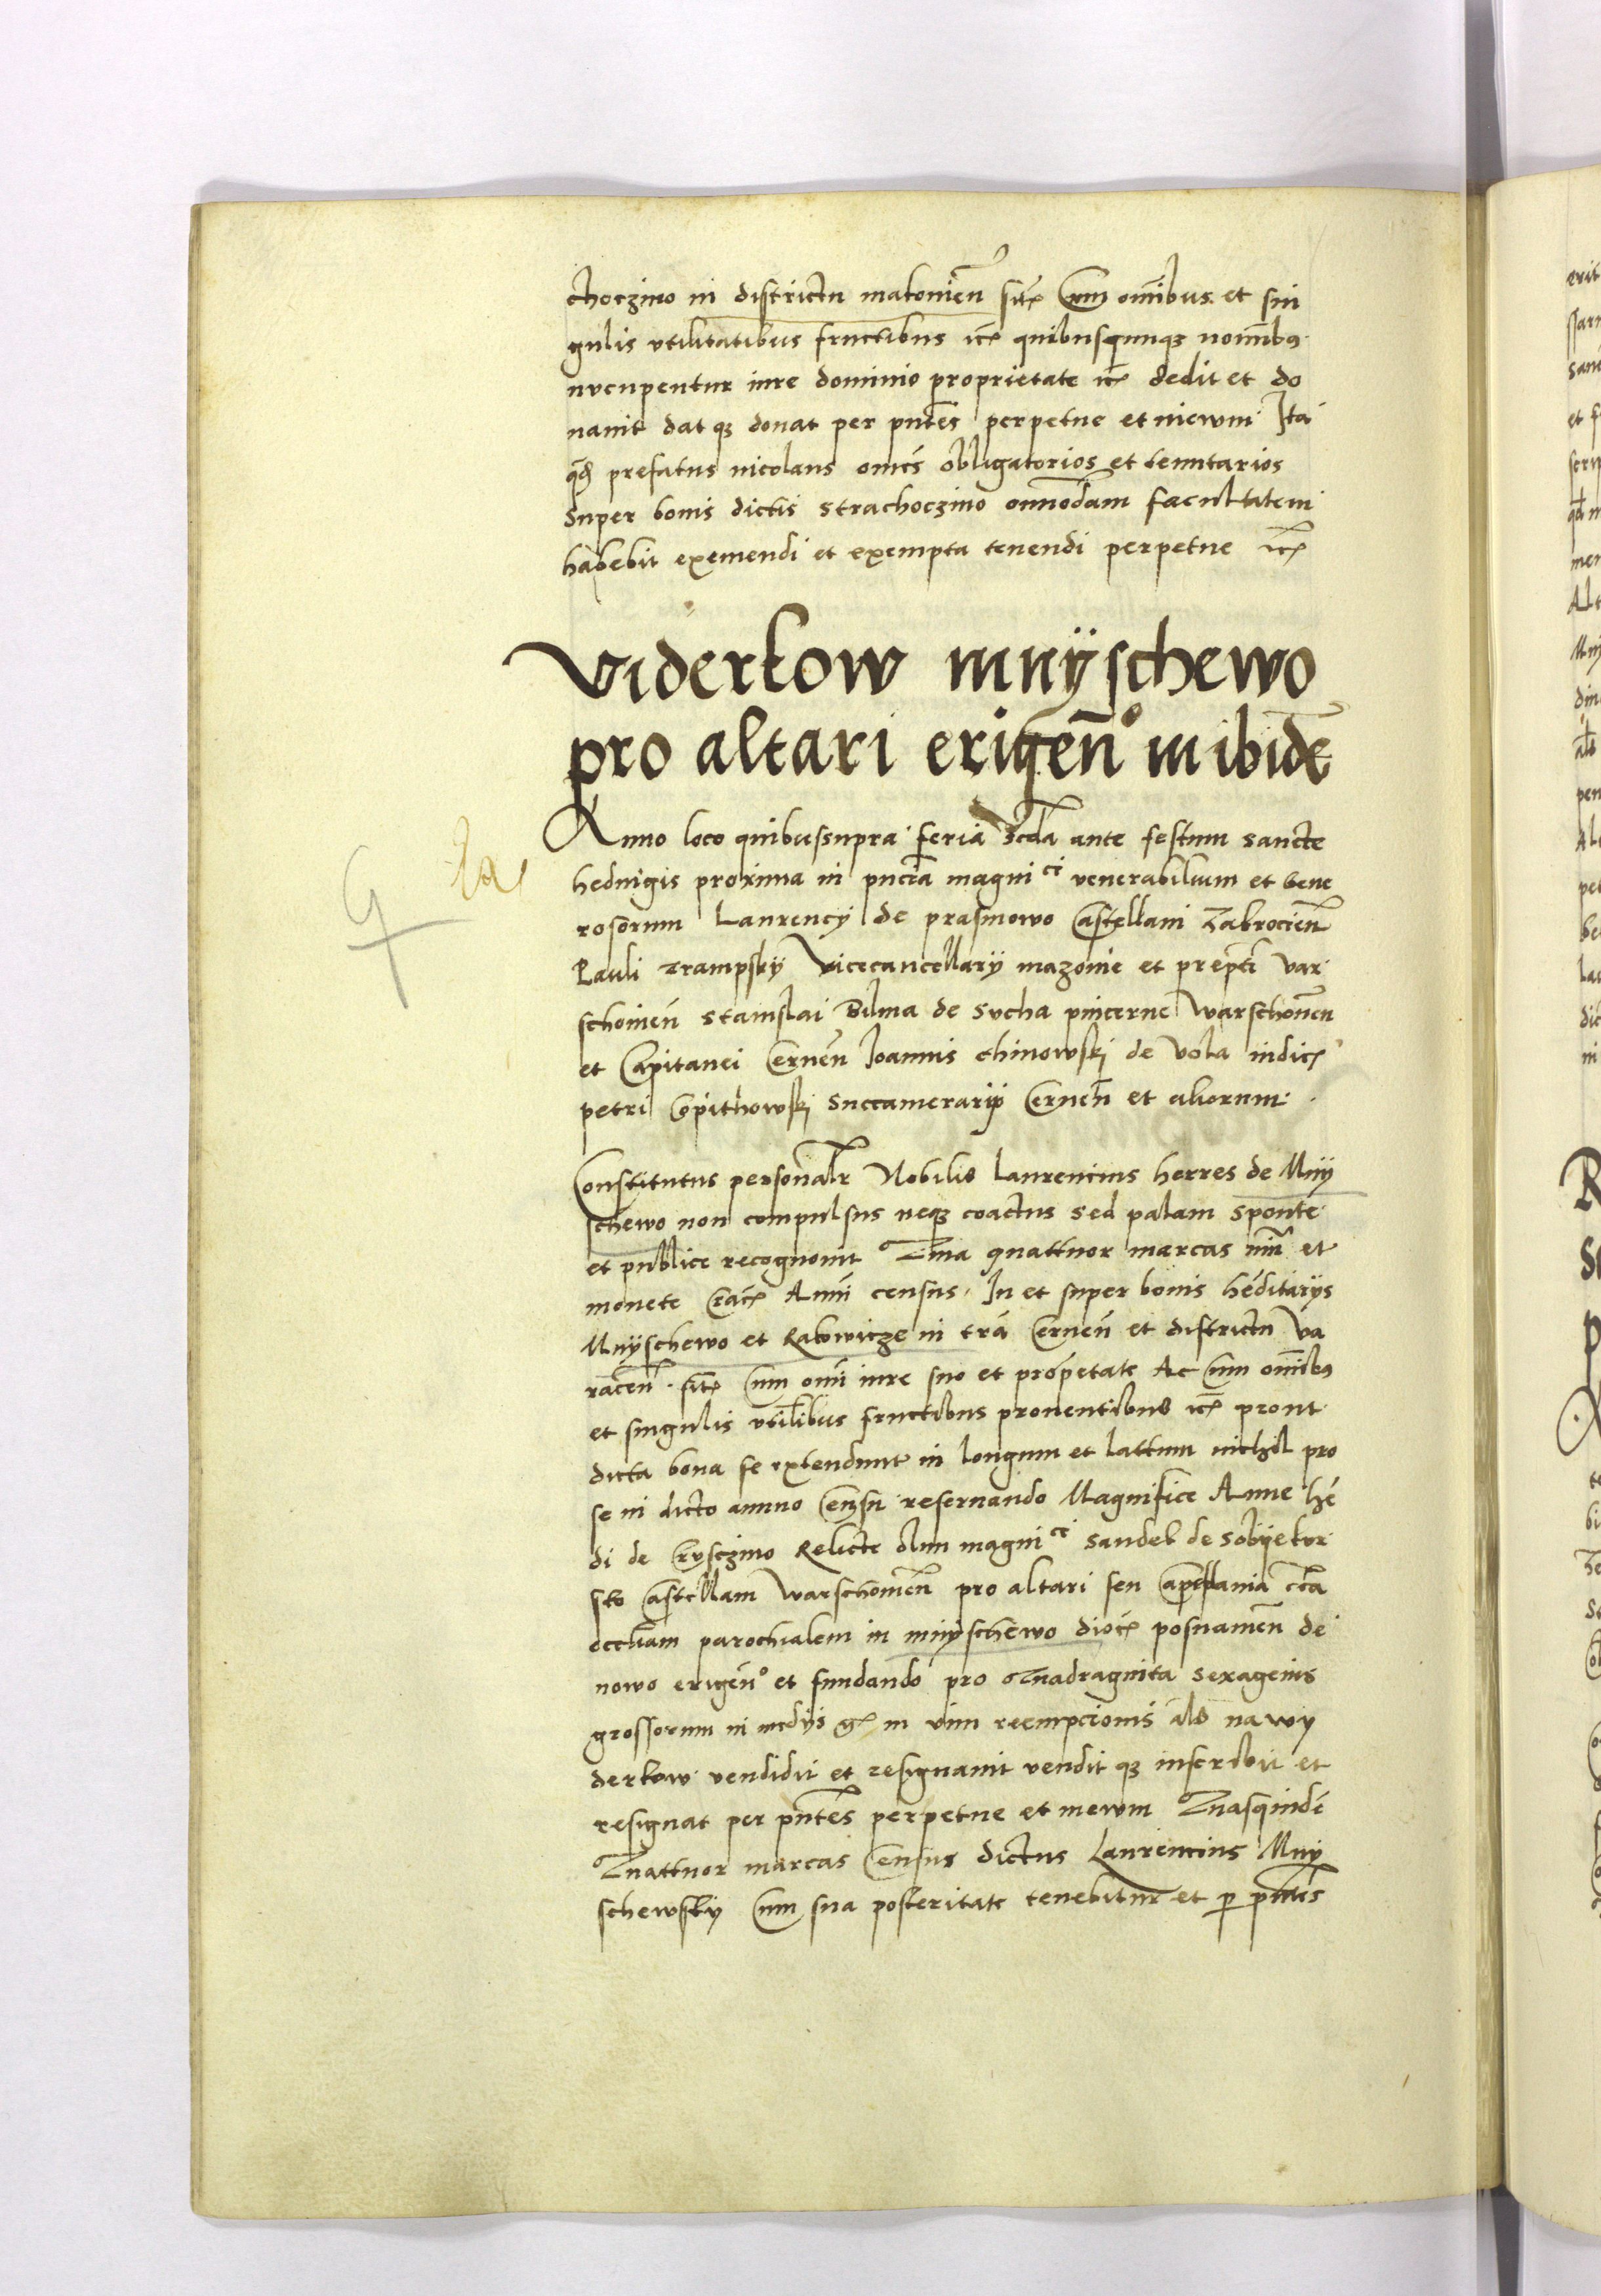 choczino in districtu makouien̄ sit᷒ cum om̄ibus et sin
gulis vtilitatibus fructibus ⁊c᷒ quibusqunqꝫ nomībꝯ
nvcupentur iure dominio proprietate ⁊c᷒ dedit et do
nauit dat qꝫ donat per pn̄tes perpetue et in ewm Ita
qd̄ prefatus nicolaus om̄es obligatorios et tenutarios
super bonis dictis strachoczino om̄odam facultatem
habebit exemendi et exempta tenendi perpetue ⁊c᷒
Viderkow mnÿschewo
pro altari erigen̄º in ibidē
Anno loco quibussupra feria 2cda ante festum sancte
heduigis proxima in pn̄cia magniᶜⁱ venerabilium et gene
rosorum Laurencÿ de prasmowo Castellani Zakrocien̄
Pauli trampskÿ Vicecancellarÿ mazouie et prep̄ti var
schouien̄ stanislai Bilina de sucha pincerne warschouien̄
et Capitanei Cernen̄ Ioannis chinowski de vola iudic᷒
petri Copithowski succamerarÿ Cernen̄ et aliorum
Constitutus personalr̄ Nobilis laurencius heres de Mnÿ
schewo non compulsus neqꝫ coactus sed palam sponte
et publice recognouit Quia quattuor marcas nūi et
monete Cac᷒ Annui census In et super bonis hēditarÿs
Mnÿschewo et Rakowicze in tr̄a Cernen̄ et districtu va
racen̄ sit᷒ cum om̄i iure suo et propetate Ac cum om̄ibꝯ
et singulis vtilibus fructibus prouentibus ⁊c᷒ prout
dicta bona se extendunt in longum et lattum nichil pro
se in dicto annuo Censu reseruando Magnifice Anne hē
di de Crysczino Relicte olim magniᶜⁱ sandek de sobÿekur
sko Castellani warschouien̄ pro altari seu Capellania c̄ca
eccl̄iam parochialem in mnÿschewo dioc᷒ posnanien̄ de
nowo erigen̄º et fundando pro Quadraginta sexagenis
grossorum in medÿs g᷒ in vim reempcionis al̄s na wy
derkow vendidit et resignauit vendit qꝫ inscribit et
resignat per pn̄tes perpetue et in ewm Quasquidē
Quattuor marcas Census dictus Laurencius Mnÿ
schewsky cum sua posteritate tenebitur et ꝑ pn̄tes